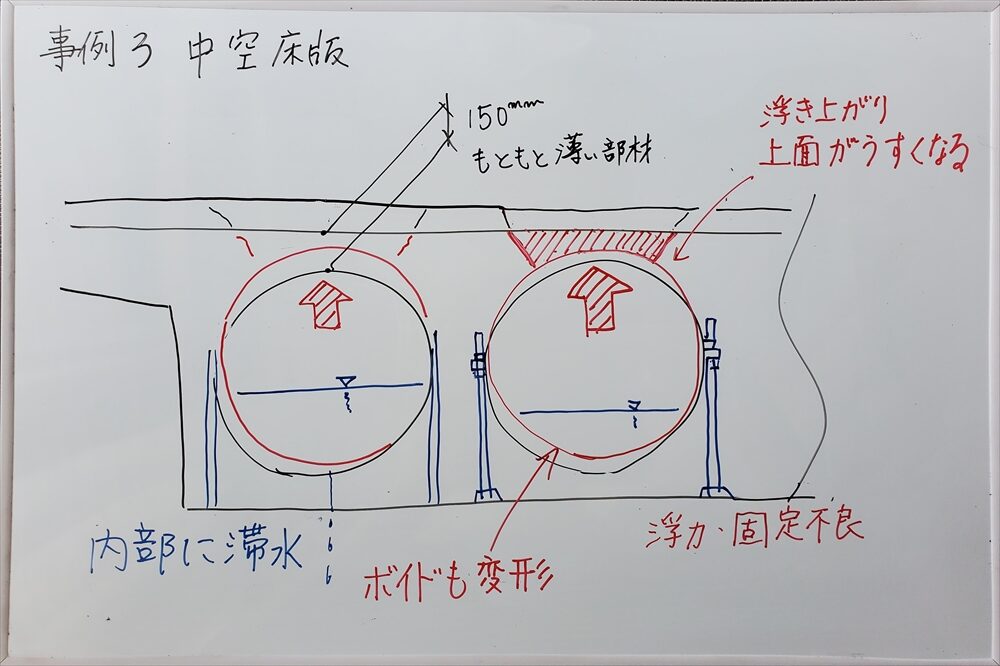 事例3 中空床版
150mm
もともと薄い部材
浮き上がり
上面がうすくなる
内部に滞水
ボイドも変形
浮力・固定不良